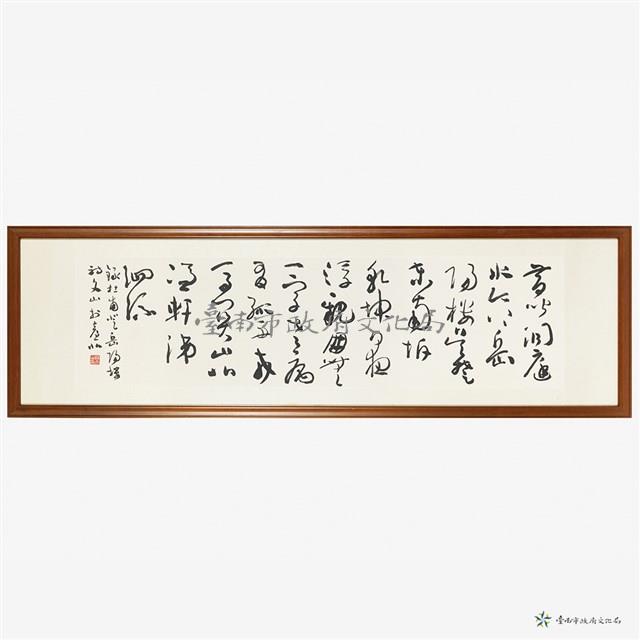 昔聞洞庭
水今上岳
陽樓吳楚
東南坼
乾坤日夜
浮親朋無
一字老病
有孤舟戎
馬關山北
憑軒涕
泗流
錄杜甫登岳陽樓
臺南市政府文化局
臺南市政府文化局